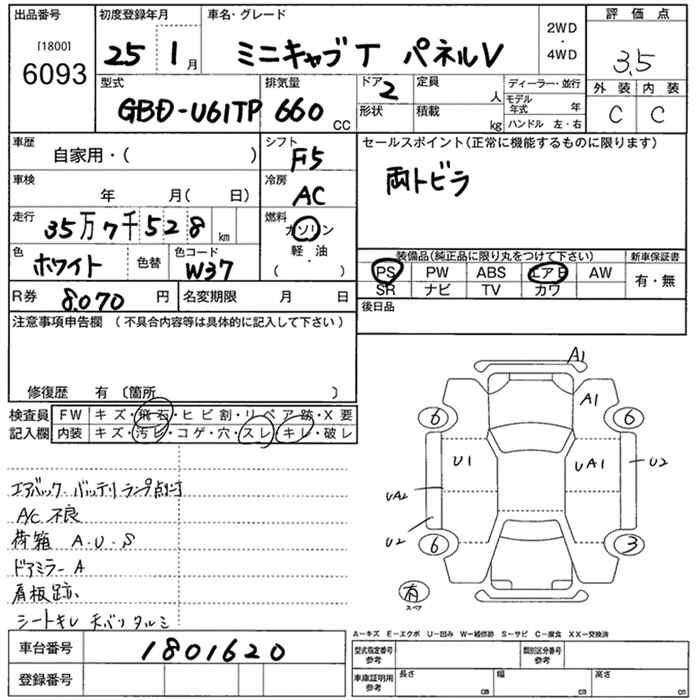 出品番号 初度登録年月 車名・グレード 2WD・4WD 評価点
[1800] 6093 25 1月 ミニキャブT パネルV 3.5
型式 GBD-U61TP 排気量 660 CC ドア 2 定員 人 ディーラー・並行 外装 内装
形状 積載 kg モデル年式 年 C C
ハンドル 左・右
車歴 自家用・( ) シフト F5 セールスポイント(正常に機能するものに限ります)
車検 年 月( 日) 冷房 AC 両トビラ
走行 35万7千528 km 燃料 ガソリン
色 ホワイト 色替 色コード W37 軽油・( ) 装備品(純正品に限り丸をつけて下さい) 新車保証書
PS PW ABS エアB AW 有・無
SR ナビ TV カワ
R券 8,070 円 名変期限 月 日 後日品
注意事項申告欄 (不具合内容等は具体的に記入して下さい)
修復歴 有 〔箇所 〕
検査員記入欄 FW キズ・飛石・ヒビ割・リペア跡・X要
内装 キズ・汚れ・コゲ・穴・スレ・キレ・破レ
A1
A1
6 6
U1 UA1 U2
UA2
U2
6 3
有
スペア
エアバック バッテリランプ点灯
A/C不良
荷箱 A・U・S
ドアミラーA
看板跡
シートキレ 天バリタルミ
A−キズ E−エクボ U−凹み W−補修跡 S−サビ C−腐食 XX−交換済
車台番号 1801620 型式指定番号 参考 類別区分番号 参考
登録番号 車庫証明用 参考 長さ cm 幅 cm 高さ cm